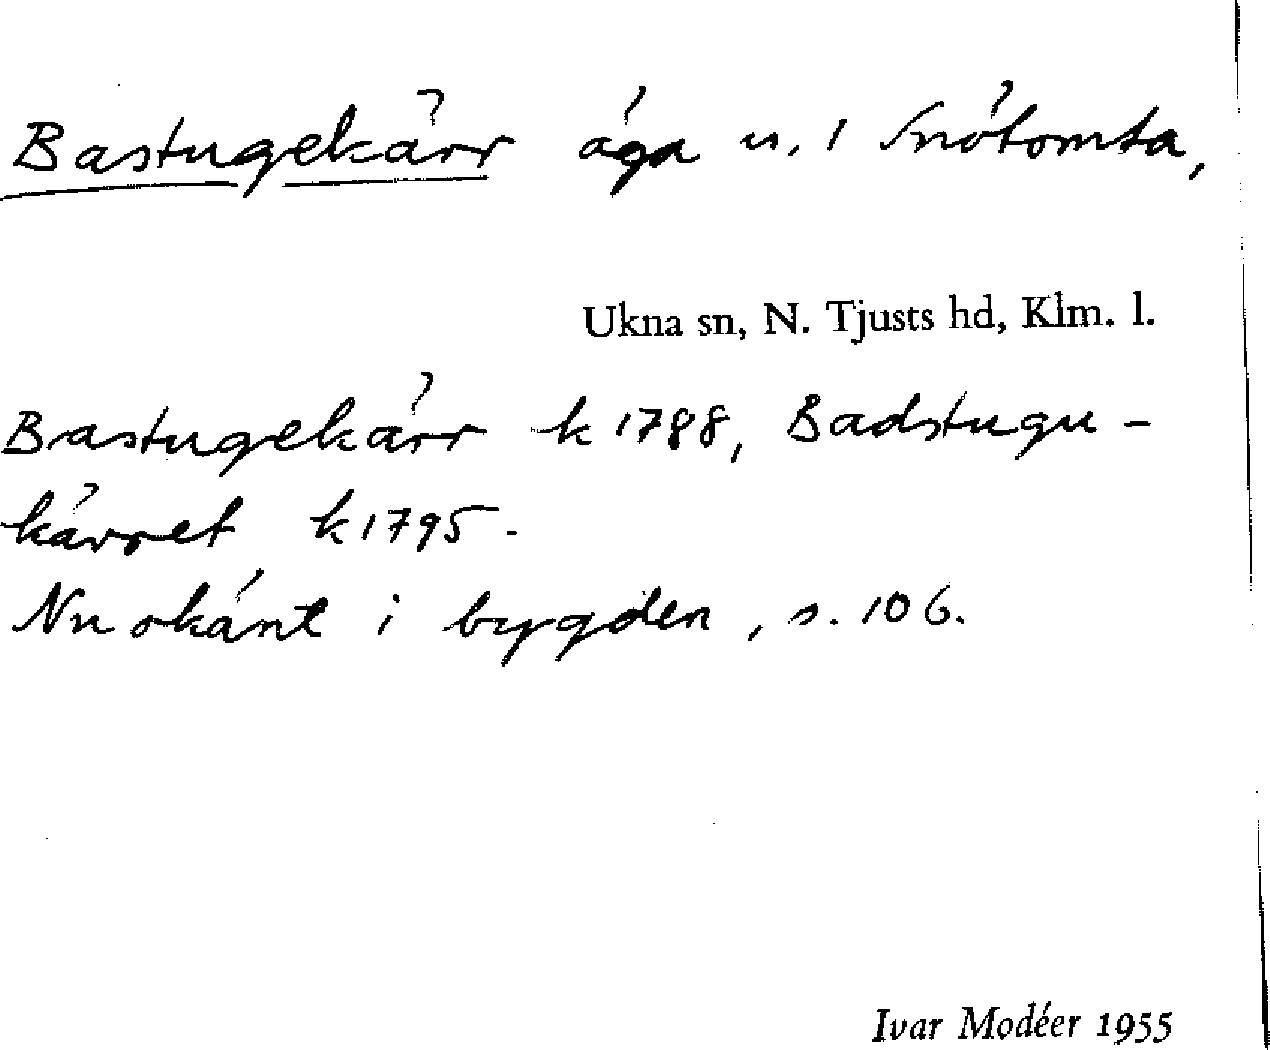 Bastugekärr äga u. 1 Snötomta,
Ukna sn, N. Tjusts hd, Klm. l.
Bastugekärr k 1788, Badstugu-
kärret k 1795.
Nu okänt i bygden, s. 106.
Ivar Modéer 1955